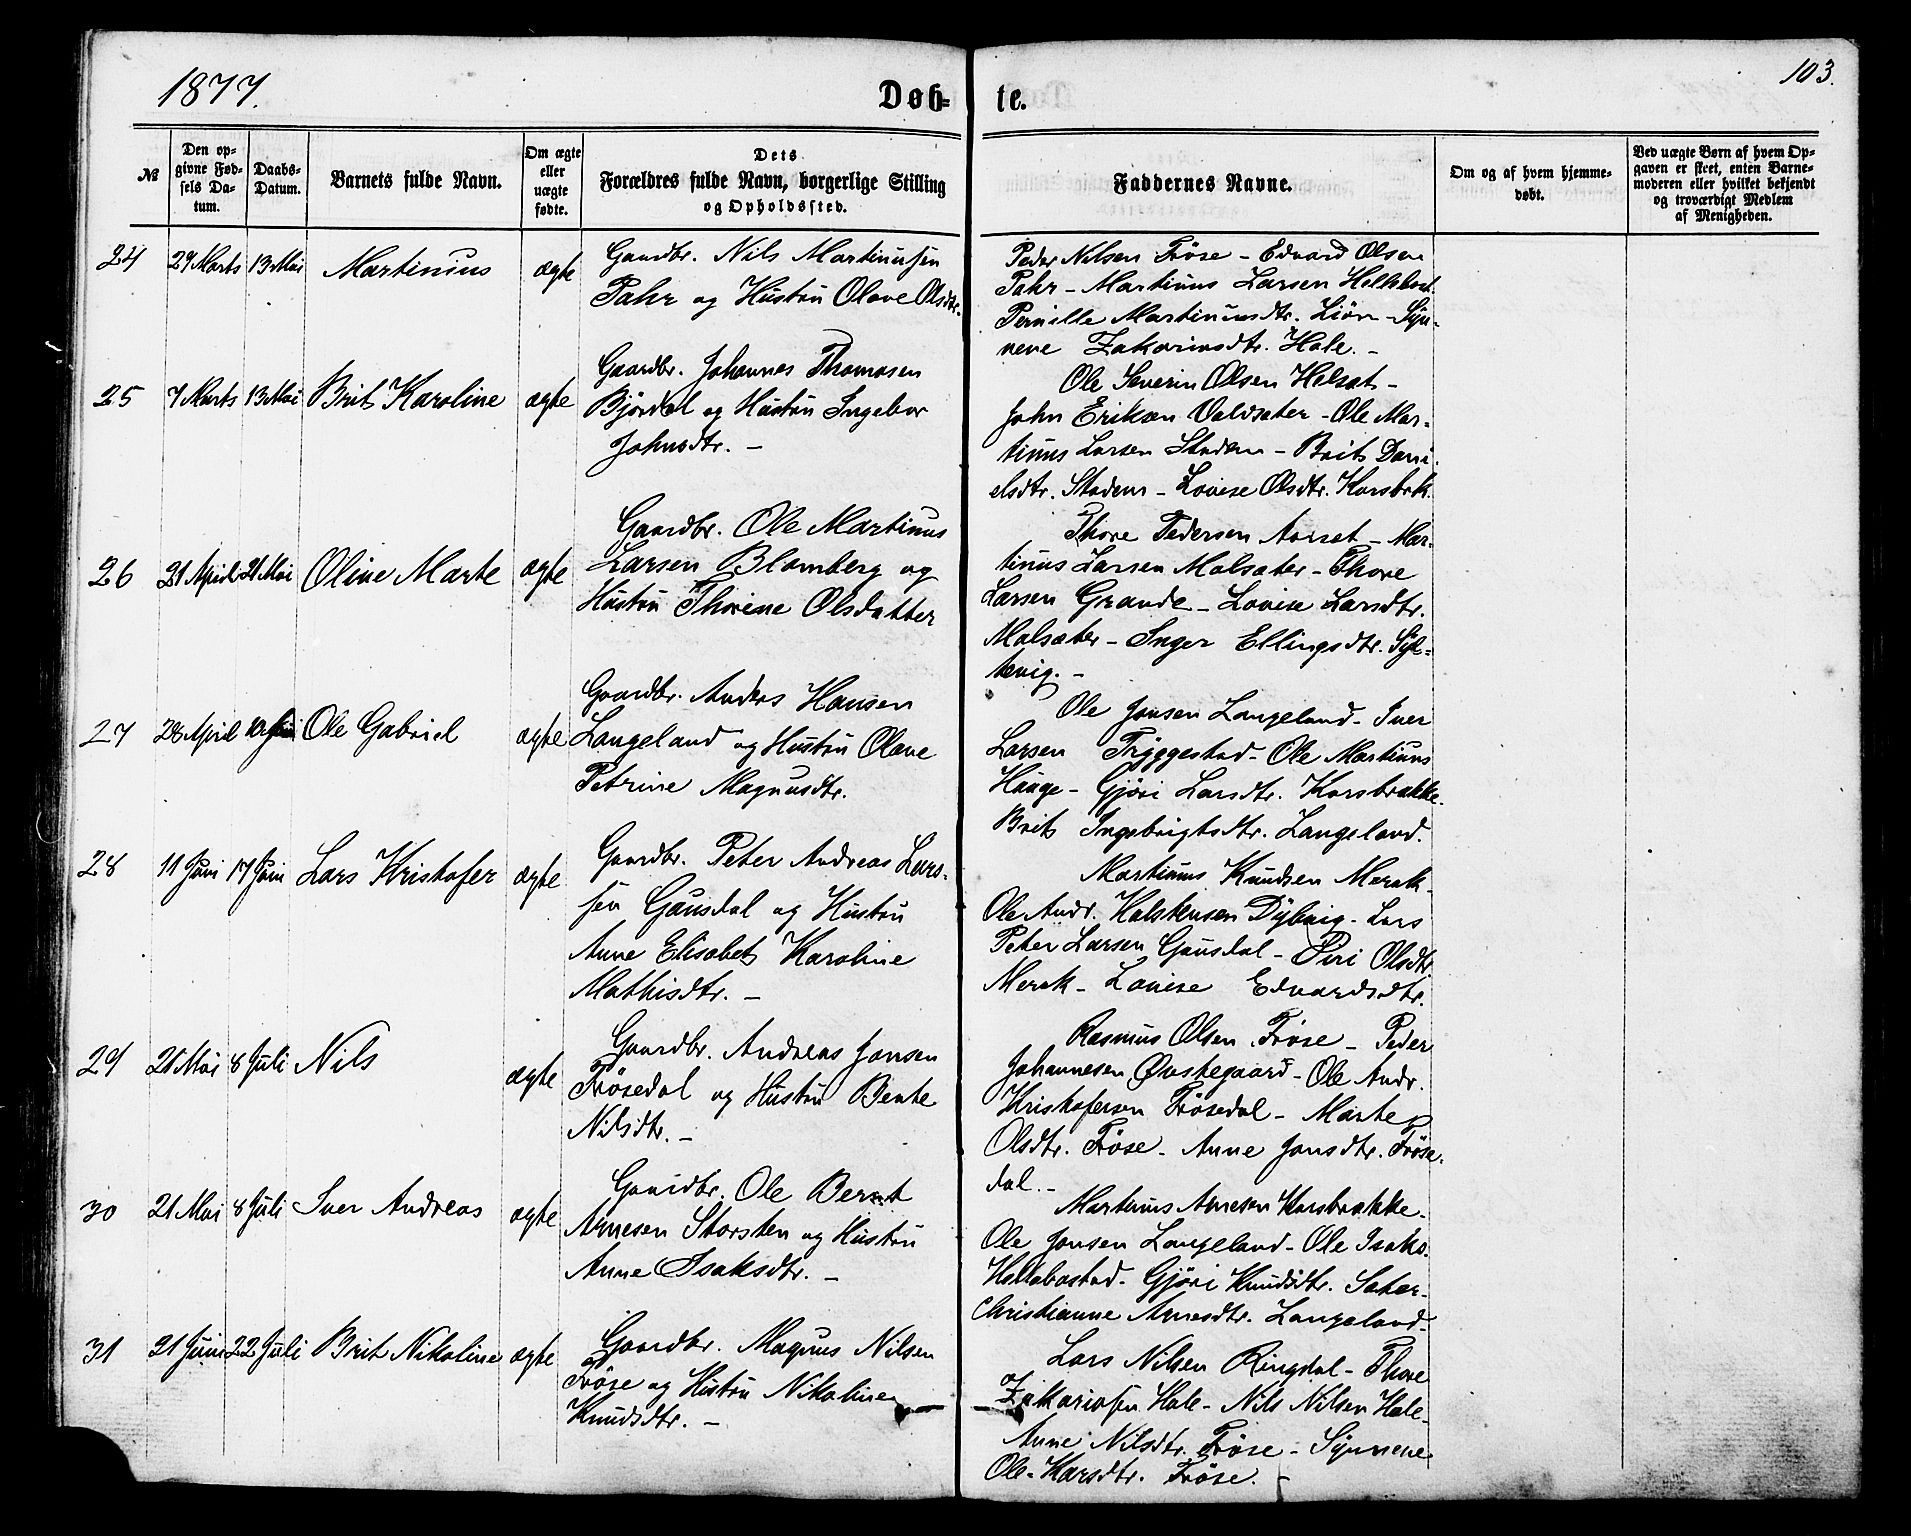 1877.
Døb-
te.
103.
№
Den op-
givne Fød-
sels Da-
tum.
Daabs-
Datum.
Barnets fulde Navn.
Om ægte
eller
uægte
fødte.
Dets
Forældres fulde Navn, borgerlige Stilling
og Opholdssted.
Faddernes Navne.
Om og af hvem hjemme-
døbt.
Ved uægte Børn af hvem Op-
gaven er skeet, enten Barne-
moderen eller hvilket bekjendt
og troværdigt Medlem
af Menigheden.
24 29 Marts 13 Mai Martinius ægte
Gaardbr. Nils Martinussen
Pahr og Hustru Olave Olsdtr.
Peder Nilsen Frøse - Edvard Olsen
Pahr - Martinus Larsen
Pernille Martinusdtr. Liøen - Syn-
neve Zakariasdtr. Hole. -
25 7 Marts 13 Mai Brit Karoline ægte
Gaardbr. Johannes Thomasen
Bjørdal og Hustru Ingebor
Johnsdtr. -
Ole Severin Olsen Helsæt -
John Eriksen Valdsæter - Ole Mar-
tinus Larsen Stadem - Brit Dani-
elsdtr. Stadem - Lovise Olsdtr. Korsbrk.
26 21 April 21 Mai Oline Marte ægte
Gaardbr. Ole Martinus
Larsen Blomberg og
Hustru Thorine Olsdatter
Thore Pedersen Aarset - Mar-
tinus Larsen Molsæter - Thore
Larsen Grande - Lovise Larsdtr.
Molsæter - Inger Ellingsdtr. Syl-
tevig. -
27 28 April Ole Gabriel ægte
Gaardbr. Anders Hansen
Langeland og Hustru Olave
Petrine Magnusdtr.
Ole Jonsen Langeland - Iver
Larsen Tryggestad - Ole Martinus
Hauge - Gjøri Larsdtr. Korsbrække.
Brit Ingebrigtsdtr. Langeland.
28 11 Juni 17 Juni Lars Kristofer ægte
Gaardbr. Peter Andreas Lars-
sen Gausdal og Hustru
Anne Elisabet Karoline
Mathisdtr. -
Martinus Knudsen Merok -
Ole Andr. Halstensen Dybvig - Lars
Peter Larsen Gausdal - Siri Olsdtr.
Merok - Lovise Edvardsdtr.
29 28 Mai 8 Juli Nils ægte
Gaardbr. Andreas Jonsen
Frøsedal og Hustru Bente
Nilsdtr. -
Rasmus Olsen Frøse - Peder
Johannesen Øvstegaard - Ole Andr.
Kristofersen Frøsedal - Marte
Olsdtr. Frøse - Anne Jonsdtr. Frøse-
dal. -
30 21 Mai 8 Juli Iver Andreas ægte
Gaardbr. Ole Bernt
Arnesen Storsten og Hustru
Anne Isaksdtr. -
Martinus Arnesen Korsbrække -
Ole Jonsen Langeland - Ole Isaks.
Hellebostad - Gjøri Knudsdtr. Sæter -
Christianne Arnesdtr. Langeland -
31 21 Juni 22 Juli Brit Nikoline ægte
Gaardbr. Magnus Nilsen
Frøse og Hustru Nikoline
Knudsdtr. -
Lars Nilsen Ringdal - Thore
Zakariasen Hole - Nils Nilsen Hole -
Anne Nilsdtr. Frøse - Synneve
Ole-Larsdtr. Frøse. -